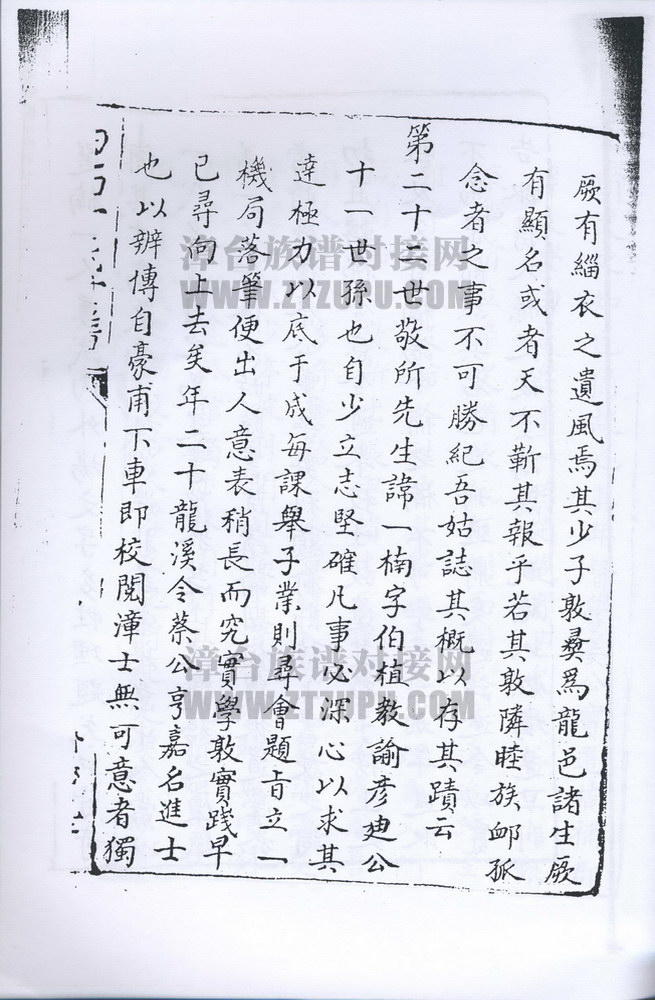 厥有緇衣之遺風焉其少子敦彝為龍邑諸生厥
有顯名或者天不靳其報乎若其敦隣睦族卹孤
念者之事不可勝紀吾姑誌其概以存其蹟云
第二十二世敬所先生諱一楠字伯植教諭彥迪公
十一世孫也自少立志堅確凡事必深心以求其
達極力以底于成每課舉子業則尋會題旨立一
機局落筆便出人意表稍長而究實學敦實踐早
已尋向上去矣年二十龍溪令蔡公亨嘉名進士
也以辨博自豪甫下車即校閱漳士無可意者獨
漳台族谱对接网
WWW.ZTZUPU.COM
漳台族谱对接网
WWW.ZTZUPU.COM